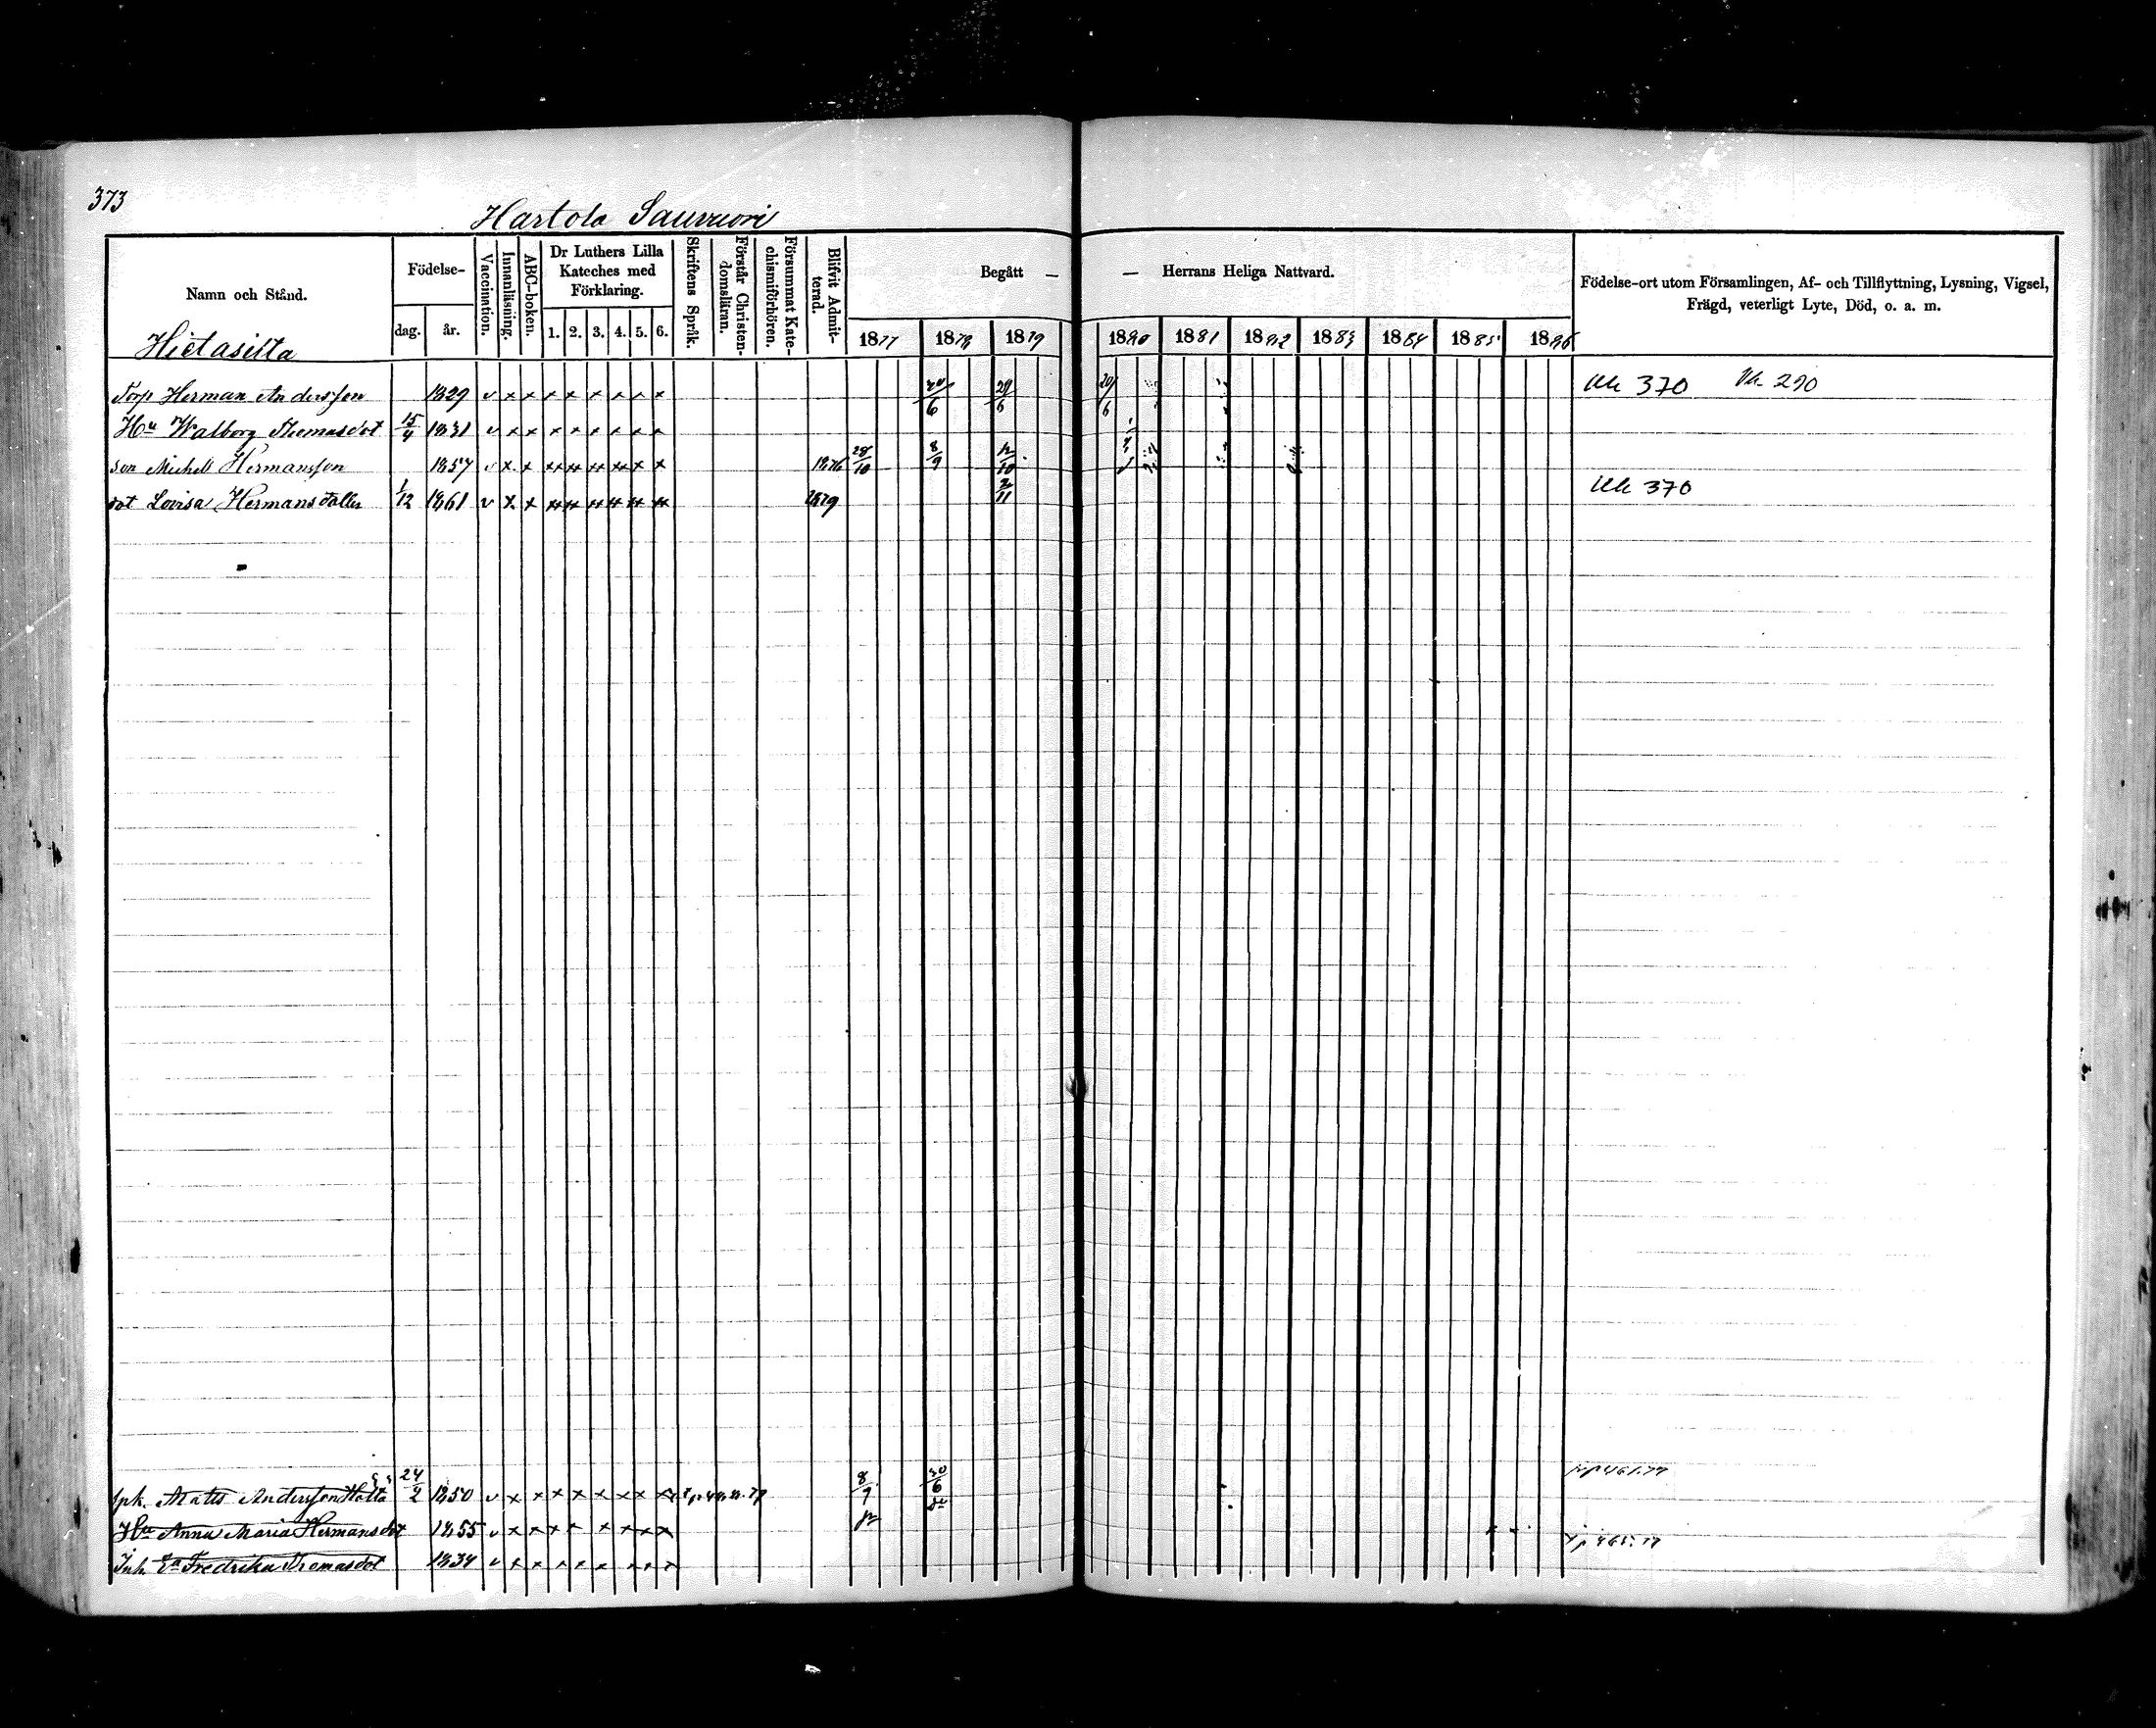 373
Hartola Sauvuori
Namn och Stånd.
Födelse-
dag. år.
Vaccination.
Innanläsning.
ABC-boken.
Dr Luthers Lilla Kateches med Förklaring.
1. 2. 3. 4. 5. 6.
Skriftens Språk.
Förstår Christen-domsläran.
Försummat Kate-chismiförhören.
Blifvit Admit-terad.
Begått — — Herrans Heliga Nattvard.
1877 1878 1879 1880 1881 1882 1883 1884 1885 1886
Födelse-ort utom Församlingen, Af- och Tillflyttning, Lysning, Vigsel,
Frägd, veterligt Lyte, Död, o. a. m.
Hietasilta
Torp Herman Andersson 1829 v x x x x x x x x 30/6 29/6 20/6 370 290
Hu Walborg Thomasdot 15/4 1831 v x x x x x x x x
son Michell Hermansson 1857 v x x xx xx xx xx x x 1876 28/10 8/9 12/10
dot Lovisa Hermansdotter 1/12 1861 v x x xx xx xx xx xx xx 1879 2/11 370
Matts Andersson 24/2 1850 v x x x x x x x x 8/9 30/6
Hu Anna Maria Hermansdot 1855 v x x x x x x x x
Inh. Fredrika Thomasdot 1834 v x x x x x x x x